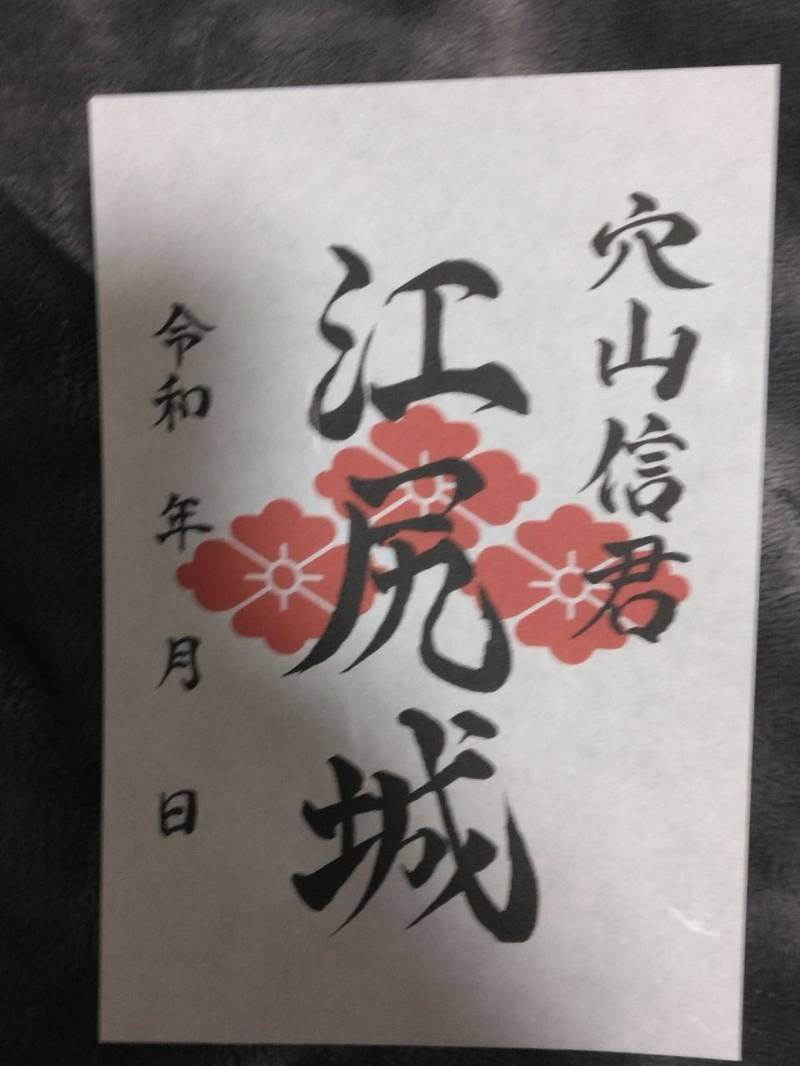 穴山信君
江尻城
令和 年 月 日